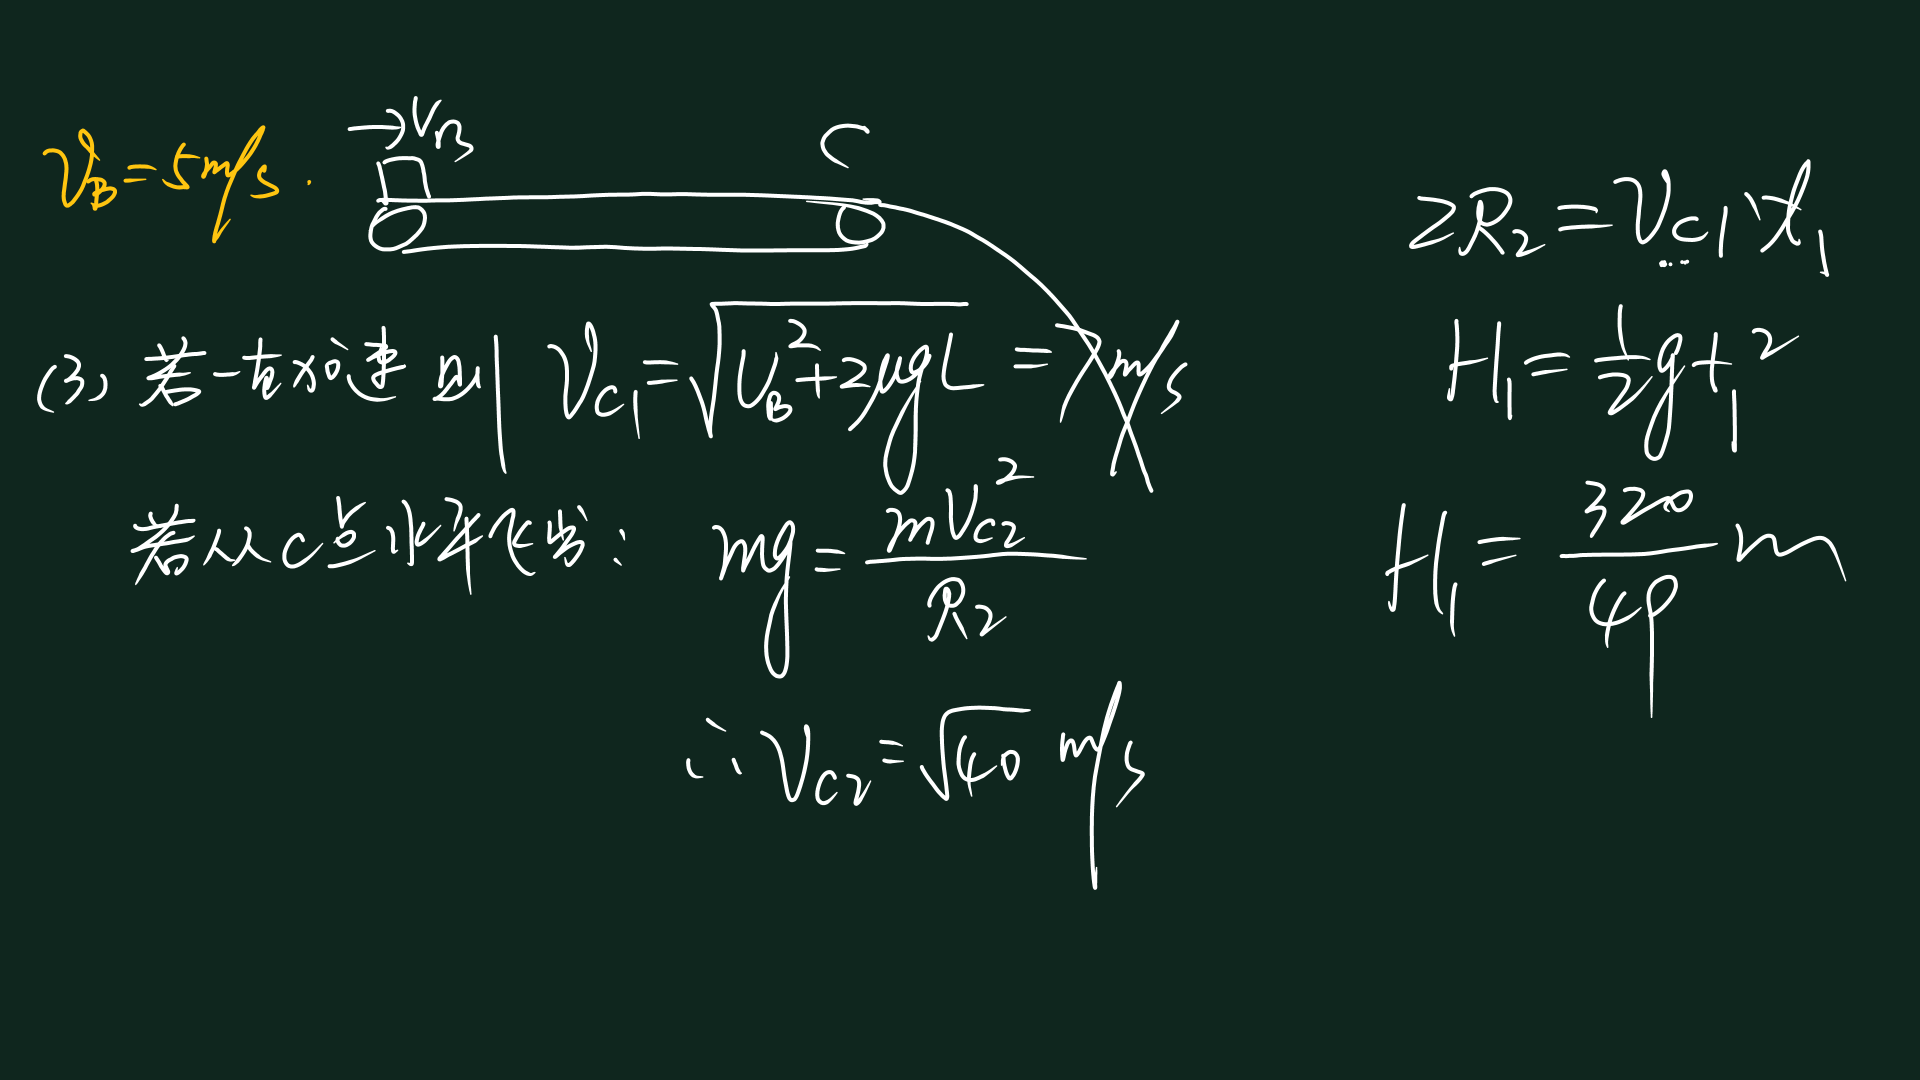 V_B=5m/s.
→V_B
C
(3) 若一直加速 则 V_{C1}=√(V_B²+2μgL)=7m/s
若从C点水平飞出: mg=mV_{C2}²/R_2
∴V_{C2}=√40 m/s
2R_2=V_{C1}·t_1
H_1=½gt_1²
H_1=320/49 m